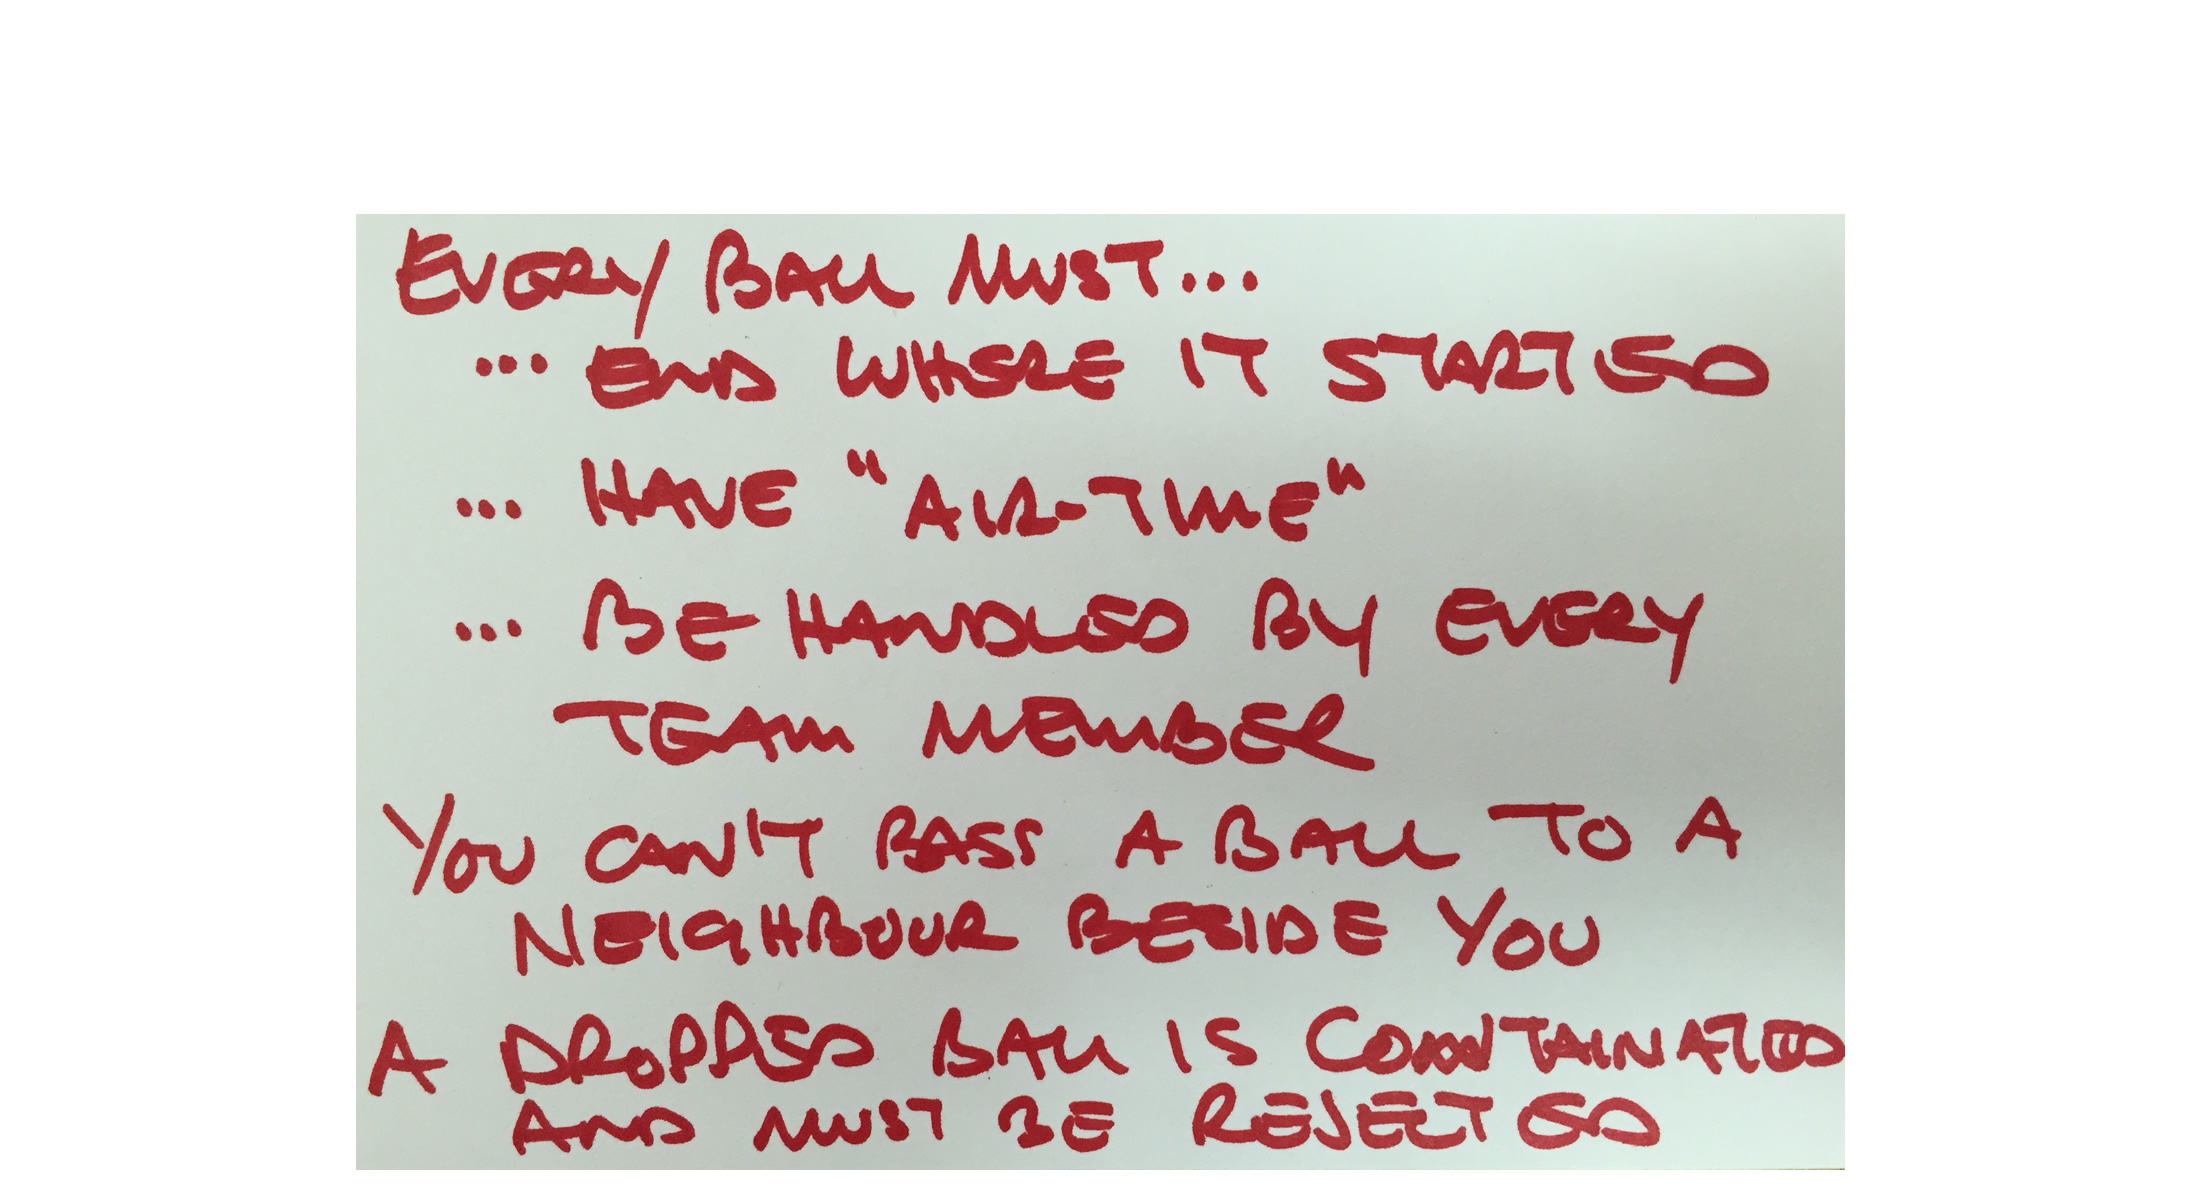 EVERY BALL MUST...
... END WHERE IT STARTED
... HAVE "AIR-TIME"
... BE HANDLED BY EVERY
TEAM MEMBER
YOU CAN'T PASS A BALL TO A
NEIGHBOUR BESIDE YOU
A DROPPED BALL IS CONTAINATED
AND MUST BE REJECTED